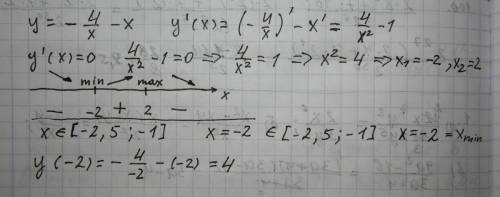 y = - 4/x - x y'(x) = (- 4/x)' - x' = 4/x² - 1
y'(x) = 0 4/x² - 1 = 0 => 4/x² = 1 => x² = 4 => x₁ = -2, x₂ = 2
min max
x
- -2 + 2 -
x ∈ [-2,5 ; -1] x = -2 ∈ [-2,5 ; -1] x = -2 = xmin
y(-2) = - 4/-2 - (-2) = 4